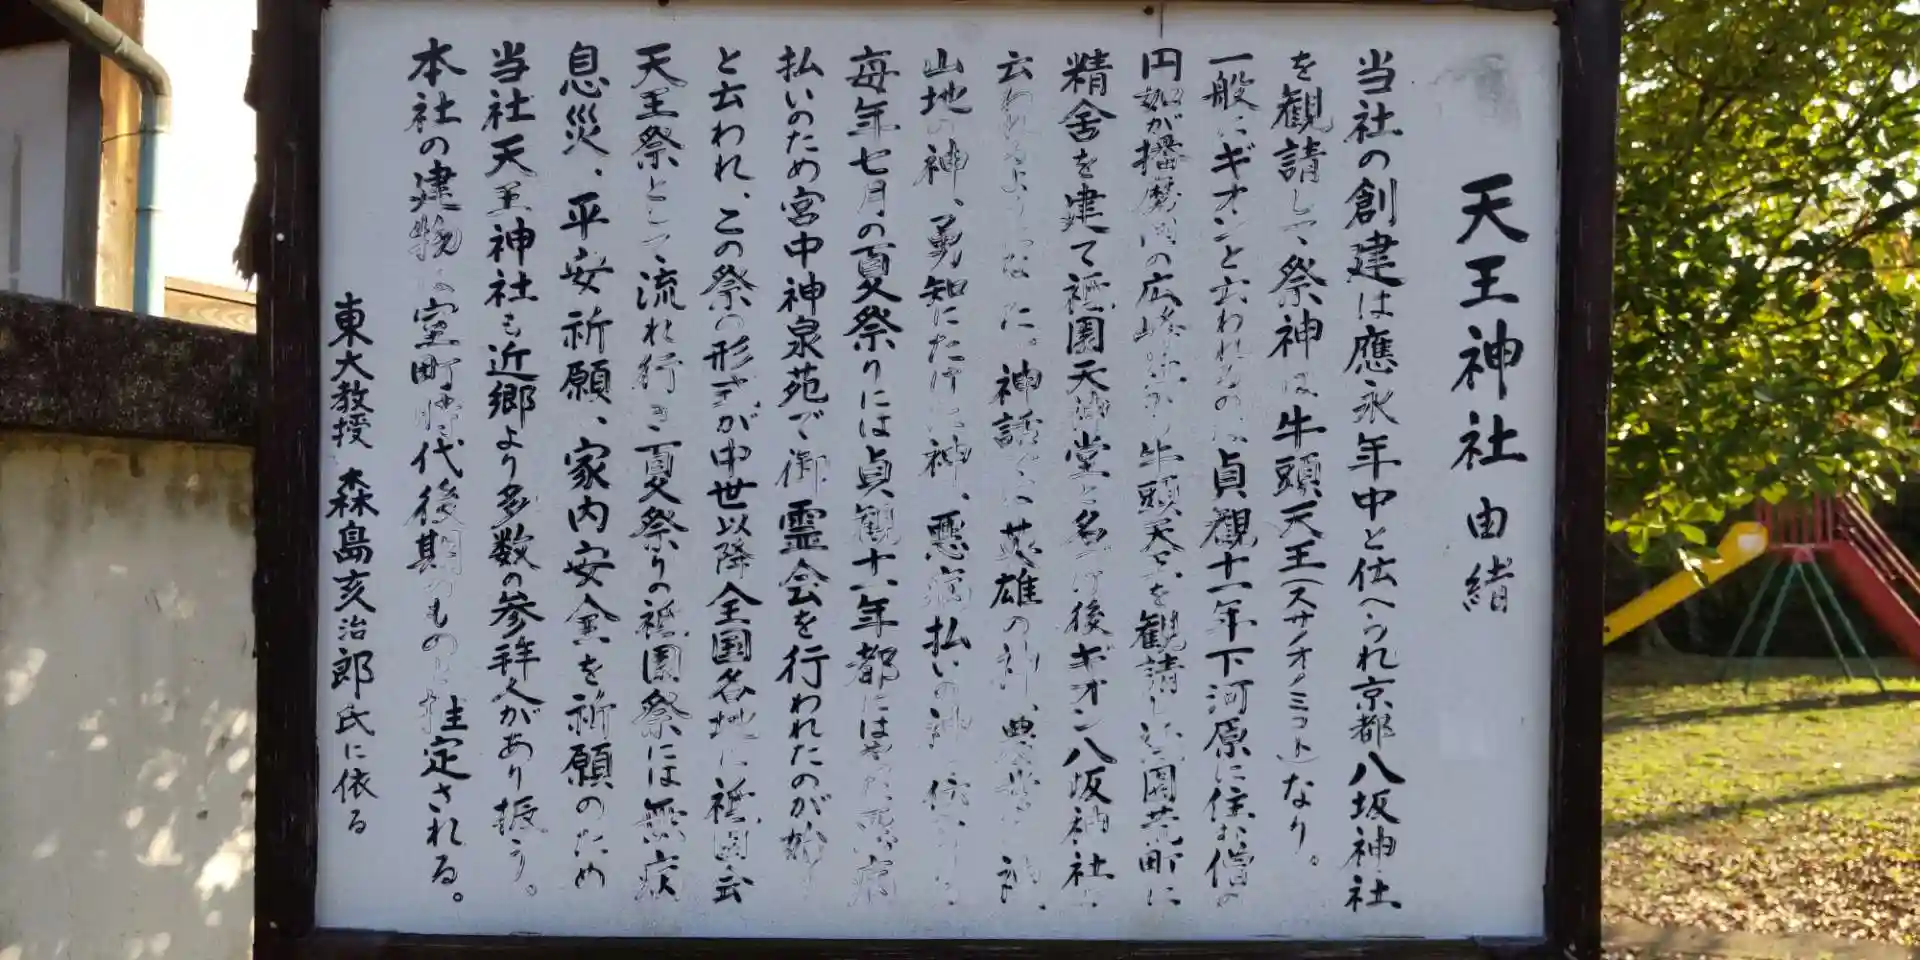 天王神社由緒
当社の創建は應永年中と伝へられ京都八坂神社
を観請して、祭神は牛頭天王(スサノオノミコト)なり。
一般にギオンと云われるのは貞観十一年下河原に住む僧の
円如が播磨国の広峰 牛頭天王を観請し祇園荒町に
精舎を建て祇園天神堂と名づけ後ギオン八坂神社と
云われるようになった。神話では英雄の神、農業の神、
山地の神、勇知にたけた神、悪病払いの神と伝
毎年七月の夏祭りには貞観十一年都にはやった悪病
払いのため宮中神泉苑で御霊会を行われたのが始り
と云われ、この祭の形式が中世以降全国名地に祇園会
天王祭として流れ行き夏祭りの祇園祭には無病
息災、平安祈願、家内安全を祈願のため
当社天王神社も近郷より多数の参拝人があり振う。
本社の建物は室町時代後期のものと推定される。
東大教授 森島亥治郎氏に依る